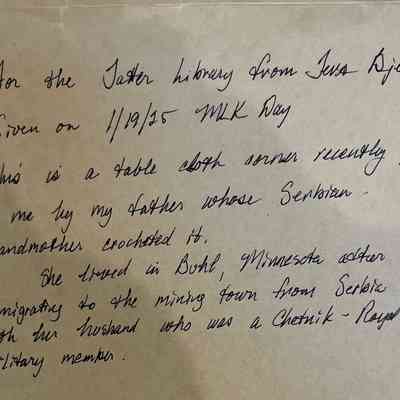 For the Tatter Library from Teva Dje
Given on 1/19/25 MLK Day
This is a table cloth corner recently
me by my father whose Serbian -
andmother crocheted it.
She lived in Buhl, Minnesota after
migrating to the mining town from Serbia
th her husband who was a Chetnik - Royal
ilitary member.